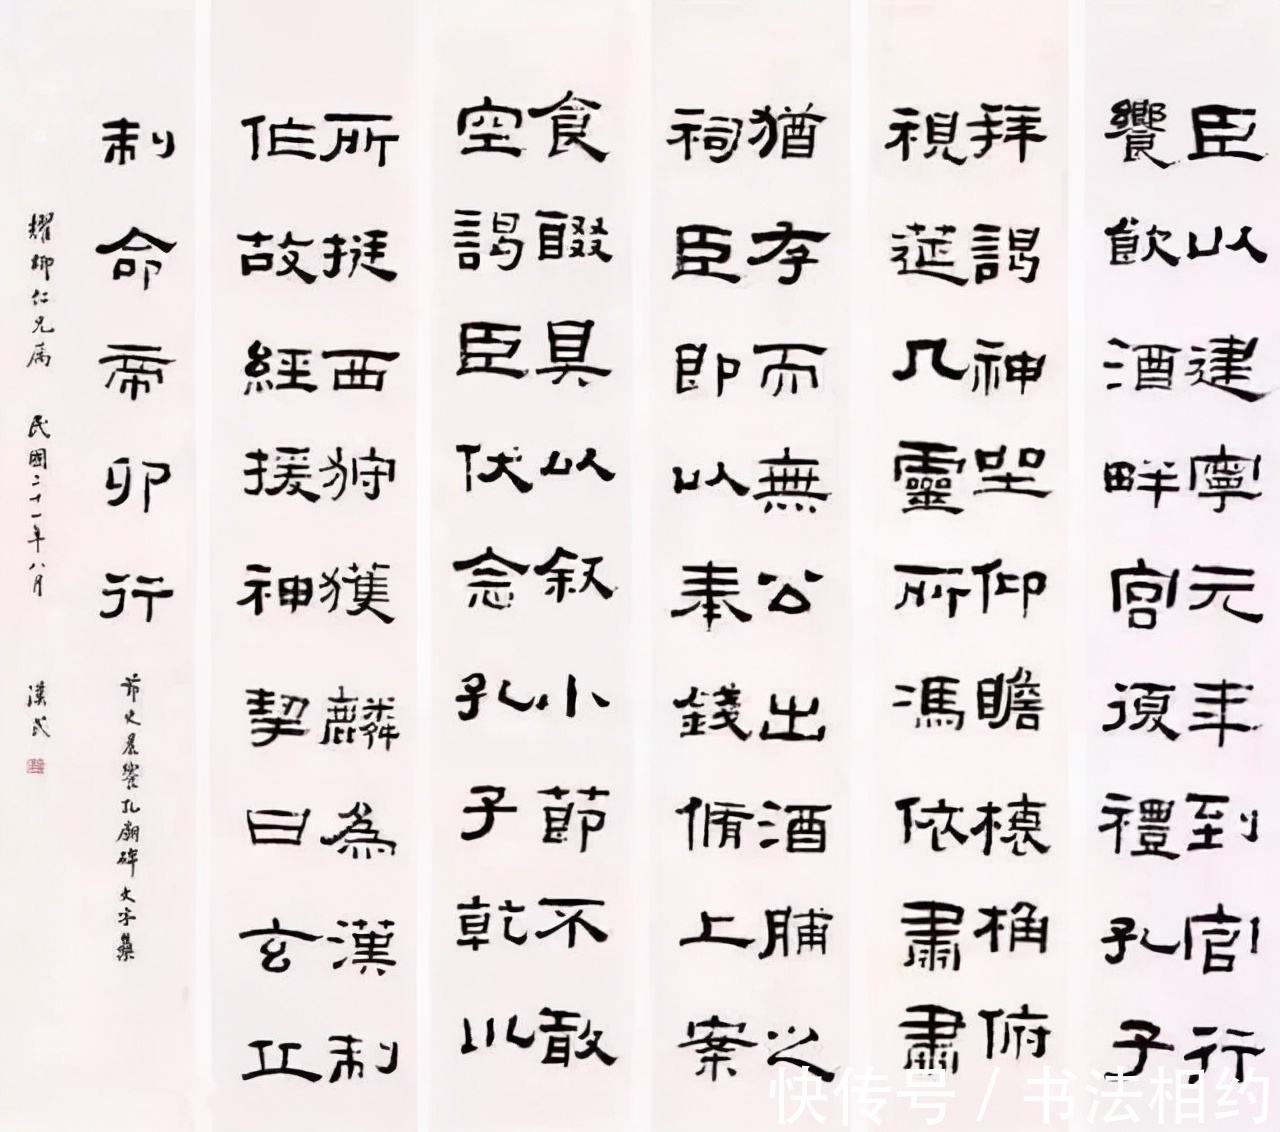 臣以建寧元年到官行
饗飲酒畔宮復禮孔子
拜謁神坐仰瞻榱桷俯
視莚几靈所馮依肅肅
猶存而無公出酒脯之
祠臣即以奉錢脩上案
食醊具以叙小節不敢
空謁臣伏念孔子乾川
所挺西狩獲麟為漢制
作故經援神挈曰玄丘
制命帝卯行
節史晨饗孔廟碑文字集
耀卿仁兄屬 民國二十一年八月 漢民
快传号 / 书法相约